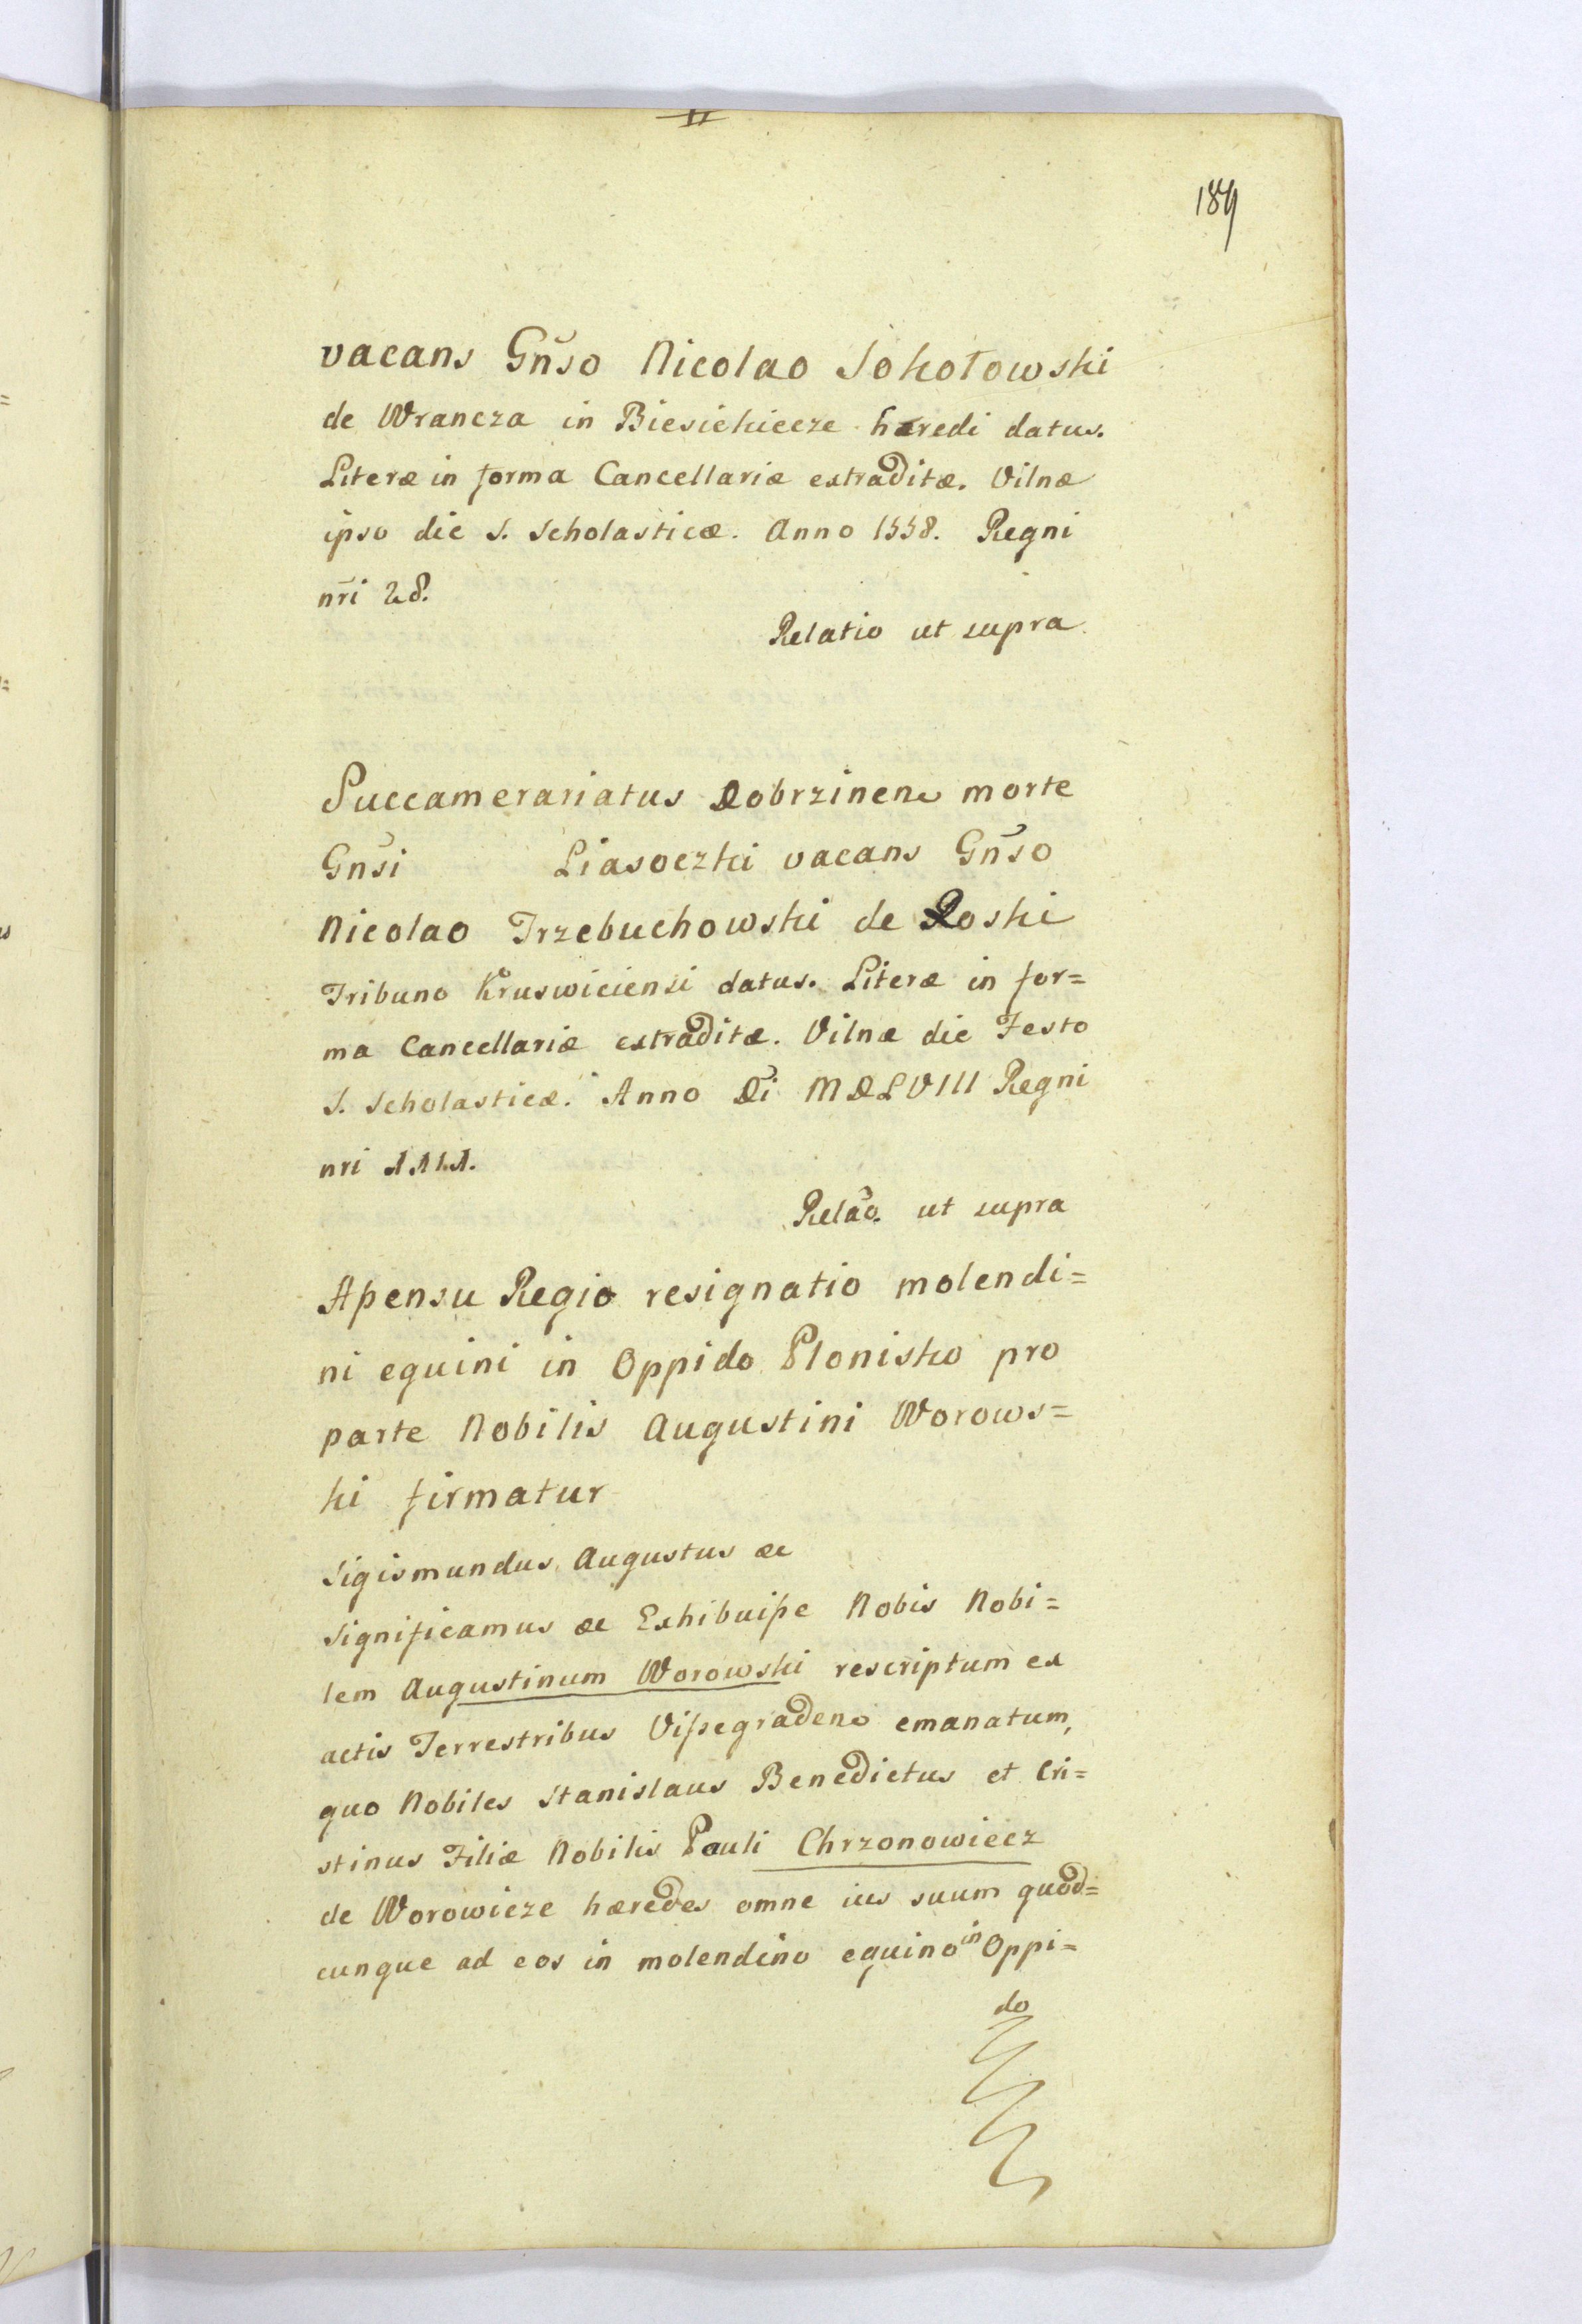 189
vacans Gn̄so Nicolao Sokołowski
de Wrancza in Biesiekiecze hæredi datus.
Literæ in forma Cancellariæ extraditæ. Vilnæ
ipso die S. Scholasticæ. Anno 1558. Regni
nr̄i 28.
Relatio ut supra
Succamerariatus Dobrzinens morte
Gn̄si Liasoczki vacans Gn̄so
Nicolao Trzebuchowski de Loski
Tribuno Kruswiciensi datus. Literæ in for=
ma Cancellariæ extraditæ. Vilnæ die Festo
S. Scholasticæ. Anno D̄i MDLVIII Regni
nri
Relāo. ut supra
Aſsensu Regio resignatio molendi=
ni equini in Oppido Plonisko pro
parte Nobilis Augustini Worows=
ki firmatur
Sigismundus Augustus &c
Significamus &c Exhibuiſse Nobis Nobi=
lem Augustinum Worowski rescriptum ex
actis Terrestribus Viſsegradens emanatum,
quo Nobiles Stanislaus Benedictus et Cri=
stinus Filiæ Nobilis Pauli Chrzonowiecz
de Worowicze hæredes omne ius suum quod=
cunque ad eos in molendino equino in Oppi=
do